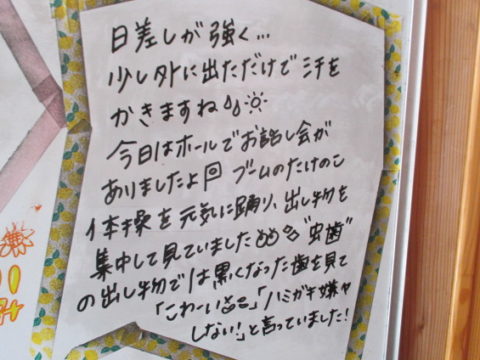 日差しが強く…
少し外に出ただけで汗を
かきますね
今日はホールでお話し会が
ありましたよ ブームのたけのこ
体操を元気に踊り、出し物を
集中して見ていました "虫歯"
の出し物では黒くなった歯を見て
「こわーい」「ハミガキ嫌々
しない!」と言っていました!